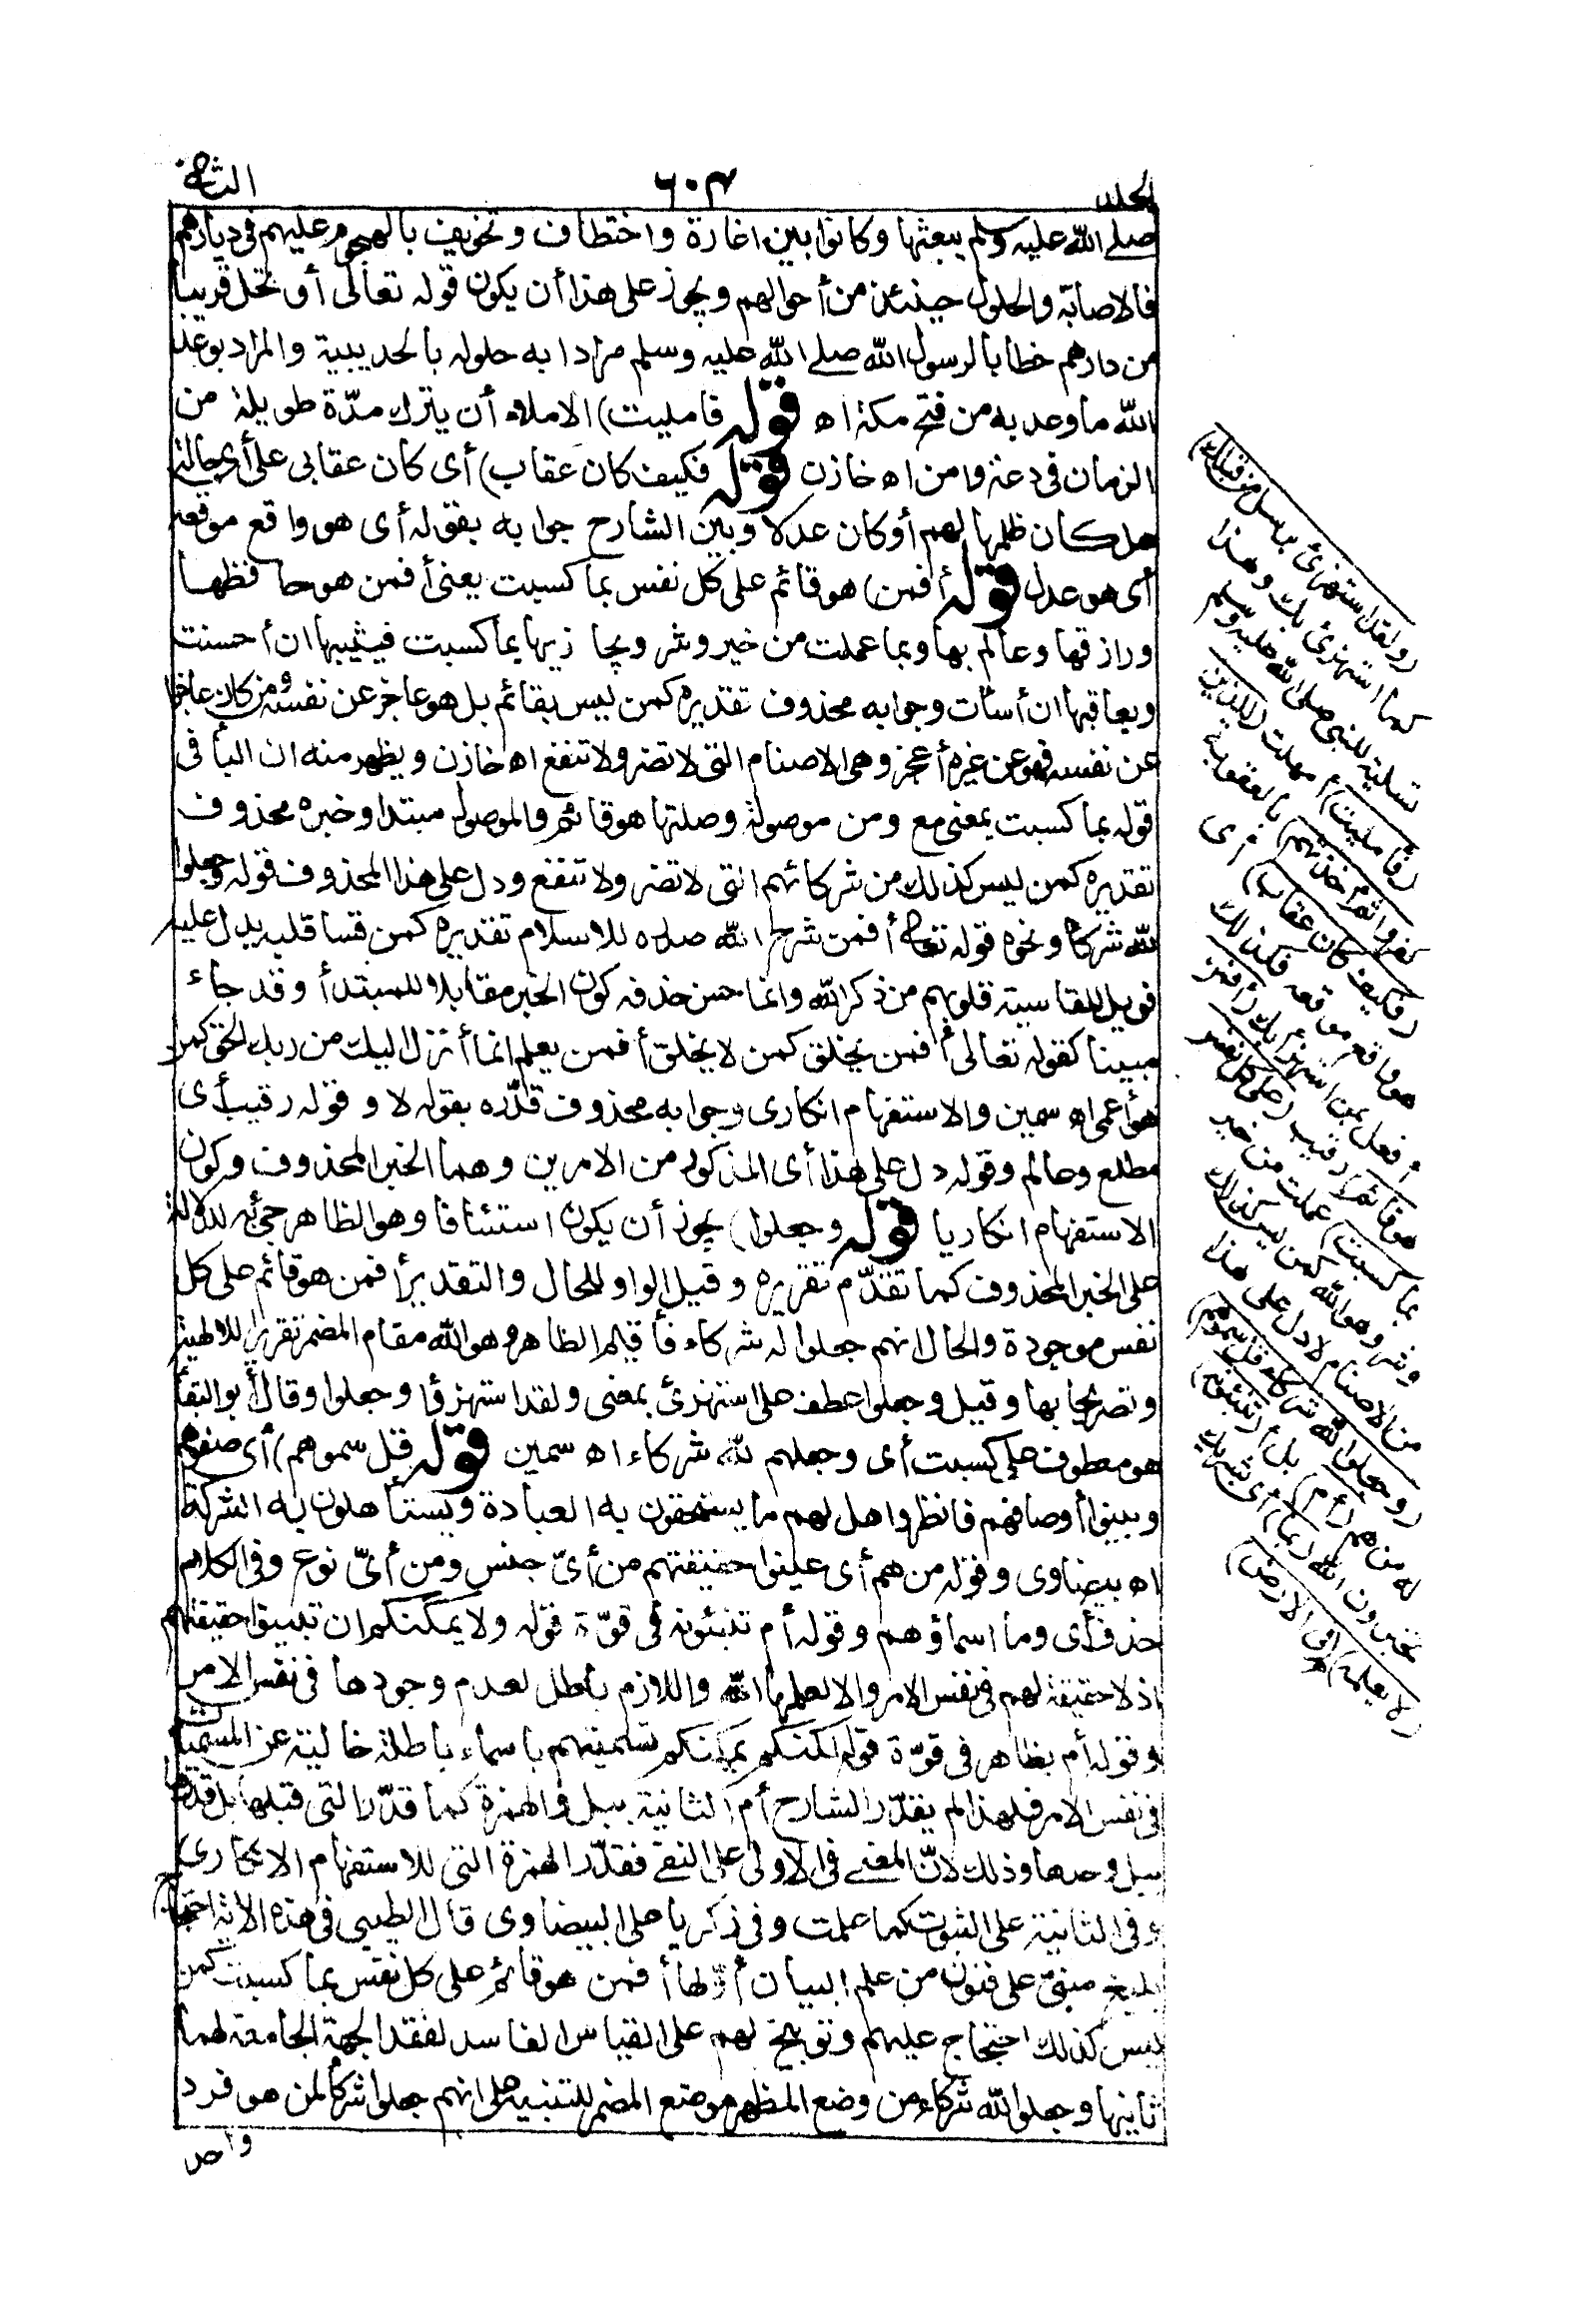 الجلد
٦٠٣
الثانى
صلى الله عليه وسلم يبعثها وكانوا بين اغارة واختطاف وتخويف بالهجوم عليهم فى ديارهم
فالاصابة والحلول حينئذ من أحوالهم ويجوز على هذا أن يكون قوله تعالى أو تحل قريبا
من دارهم خطابا لرسول الله صلى الله عليه وسلم مرادا به حلوله بالحديبية والمراد بوعد
الله ما وعد به من فتح مكة اه قوله فامليت) الاملاء أن يترك مدّة طويلة من
الزمان فى دعة وامن اه خازن قوله فكيف كان عقاب) أى كان عقابى على أى حالة
هل كان ظلما لهم أو كان عدلا وبين الشارح جوابه بقوله أى هو واقع موقعه
أى هو عدل قوله أفمن) هو قائم على كل نفس بما كسبت يعنى أفمن هو حافظها
ورازقها وعالم بها وبما عملت من خير وشر ويجازيها بما كسبت فيثيبها ان أحسنت
ويعاقبها ان أسأت وجوابه محذوف تقديره كمن ليس بقائم بل هو عاجز عن نفسه ومن كان عاجزا
عن نفسه فهو عن غيره أعجز وهى الاصنام التى لا تضر ولا تنفع اه خازن ويظهر منه ان البأ فى
قوله بما كسبت بمعنى مع ومن موصولة وصلتها هو قائم والموصول مبتدا وخبره محذوف
تقديره كمن ليس كذلك من شركائهم التى لا تضر ولا تنفع ودل على هذا المحذوف قوله وجعلوا
لله شركاء ونحوه قوله تعالى أفمن شرح الله صدره للاسلام تقديره كمن قسا قلبه يدل عليه
فويل للقاسية قلوبهم من ذكر الله وانما حسن حذفه كون الخبر مقابلا للمبتدأ وقد جاء
مبينا كقوله تعالى أفمن يخلق كمن لا يخلق أفمن يعلم انما أنزل اليك من ربك الحق كمن
هو أعمى اه سمين والاستفهام انكارى وجوابه محذوف قدّره بقوله لا وقوله رقيب أى
مطلع وعالم وقوله دل على هذا أى المذكور من الامرين وهما الخبر المحذوف وكون
الاستفهام انكاريا قوله وجعلوا) يجوز أن يكون استئنافا وهو الظاهر جئ به للدلالة
على الخبر المحذوف كما تقدّم تقريره وقيل الواو للحال والتقدير أفمن هو قائم على كل
نفس موجودة والحال انهم جعلوا له شركاء فأقيم الظاهر وهو الله مقام المضمر تقريرا للالهية
وتصريحا بها وقيل وجعلوا عطف على استهزئ بمعنى ولقد استهزؤا وجعلوا وقال أبو البقأ
هو معطوف على كسبت أى وجعلهم لله شركاء اه سمين قوله قل سموهم) أى صفوهم
وبينوا أوصافهم فانظروا هل لهم ما يستحقون به العبادة ويستأهلون به الشركة
اه بيضاوى وقوله من هم أى عينوا حقيقتهم من أىّ جنس ومن أىّ نوع وفى الكلام
حذف أى وما اسماؤهم وقوله أم تنبئونه فى قوّة قوله ولا يمكنكم ان تبينوا حقيقتهم
اذ لا حقيقة لهم فى نفس الامر والا لعلمها الله واللازم باطل لعدم وجودها فى نفس الامر
وقوله أم بظاهر فى قوّة قوله لكنكم يمكنكم تسميتهم باسماء باطلة خالية عن المسميات
فى نفس الامر فلهذا لم يقدّر الشارح أم الثانية ببل والهمزة كما قدّر التى قبلها بل قدّرها
ببل وحدها وذلك لانّ المعنى فى الاولى على النفى فقدّر الهمزة التى للاستفهام الانكارى
وفى الثانية على الثبوت كما علمت وفى زكريا على البيضاوى قال الطيبى فى هذه الاية احتجاج
بليغ مبنىّ على فنون من علم البيان أوّلها أفمن هو قائم على كل نفس بما كسبت كمن
ليس كذلك احتجاج عليهم وتوبيخ لهم على القياس الفاسد لفقد الجهة الجامعة لهما
ثانيها وجعلوا لله شركاء من وضع المظهر موضع المضمر للتنبيه على انهم جعلوا شركأ لمن هو فرد
واحد
(ولقد استهزئ برسل من قبلك)
كما استهزئ بك وهذا
تسلية للنبى صلى الله عليه وسلم
(فامليت) أمهلت (للذين
كفروا ثم أخذتهم) بالعقوبة
(فكيف كان عقاب) أى
هو واقع موقعه فكذلك
أفعل بمن استهزأ بك (أفمن
هو قائم) رقيب (على كل نفس
بما كسبت) عملت من خير
وشر وهو الله كمن ليس كذلك
من الاصنام لا دل على هذا
(وجعلوا لله شركاء قل سموهم)
له من هم (أم) بل أ (تنبئونه)
تخبرون الله (بما) أى بشريك
(لا يعلم) ه (فى الارض)